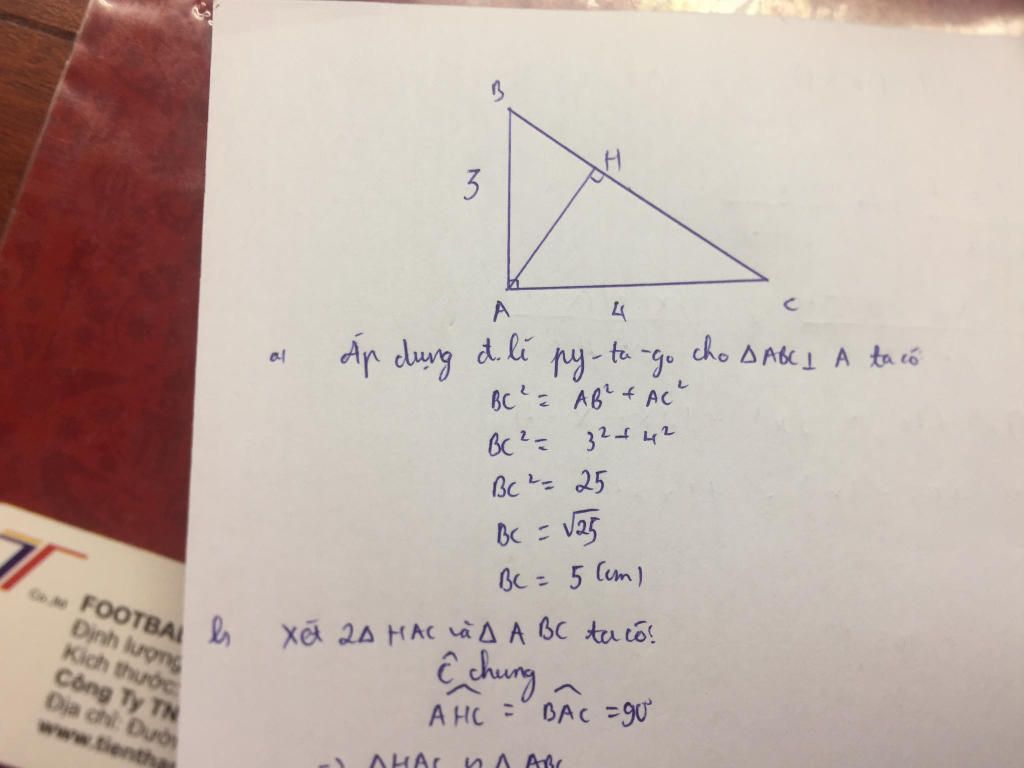 B
H
3
A
4
C
a) Áp dụng đ.lí py-ta-go cho ΔABC⊥ A ta có
BC² = AB² + AC²
BC² = 3² + 4²
BC² = 25
BC = √25
BC = 5 (cm)
b) Xét 2Δ HAC và Δ ABC ta có:
Ĉ chung
AHC = BAC = 90°
=> ΔHAC ∽ Δ ABC
Co.,ltd
FOOTBAL
Định lượng
Kích thước:
Công Ty TN
Địa chỉ: Đườn
www.tientha